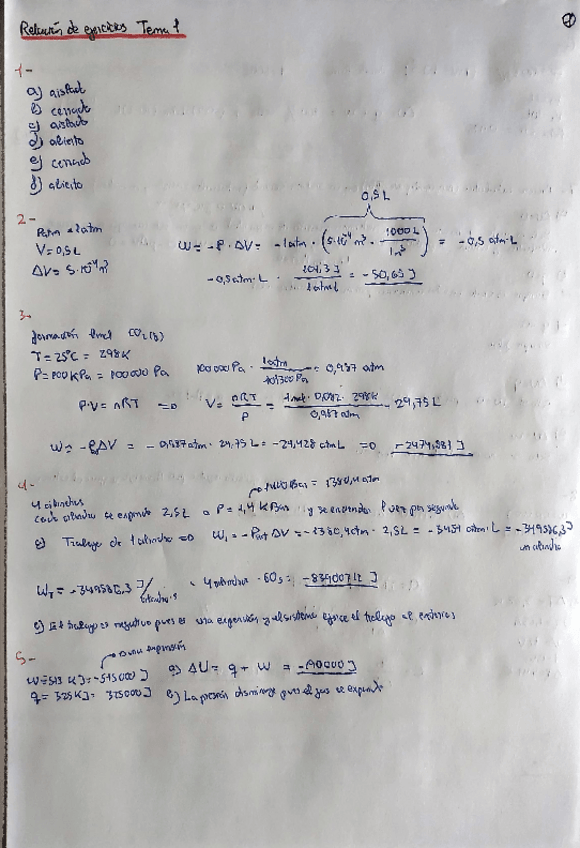 1
Relación de ejercicios Tema 1
1-
a) aislado
b) cerrado
c) aislado
d) abierto
e) cerrado
f) abierto
2-
Patm = 1atm
V = 0,5L
ΔV = 5·10⁻⁴ m³
0,5L
W = -P·ΔV = -1atm · (5·10⁻⁴ m³ · 1000L/1m³) = -0,5 atm·L
-0,5 atm·L · 101,3J/1atmL = -50,65 J
3-
formación 1mol CO₂(g)
T = 25ºC = 298K
P = 100 KPa = 100000 Pa 100000 Pa · 1atm/101300 Pa = 0,987 atm
P·V = nRT => V = nRT/P = 1mol · 0,082 · 298K/0,987atm = 24,75 L
W = -PΔV = -0,987atm · 24,75L = -24,428 atmL => -2474,581 J
4-
4 cilindros 1400 Bar = 1380,4 atm
cada cilindro se expande 2,5L a P = 1,4 KBar y se encienden 1 vez por segundo
a) Trabajo de 1 cilindro => W₁ = -Pext ΔV = -1380,4atm · 2,5L = -3451 atm·L = -349586,3 J
un cilindro
W_T = -349586,3 J/ · 4 cilindros · 60s = -83900712 J
trabajo es negativo pues es una expansión y el sistema ejerce el trabajo al
5-
una expansión
W = 515 KJ = -515000 J a) ΔU = q + W = -190000 J
q = 325KJ = 325000 J b) La presión disminuye pues el gas se expande